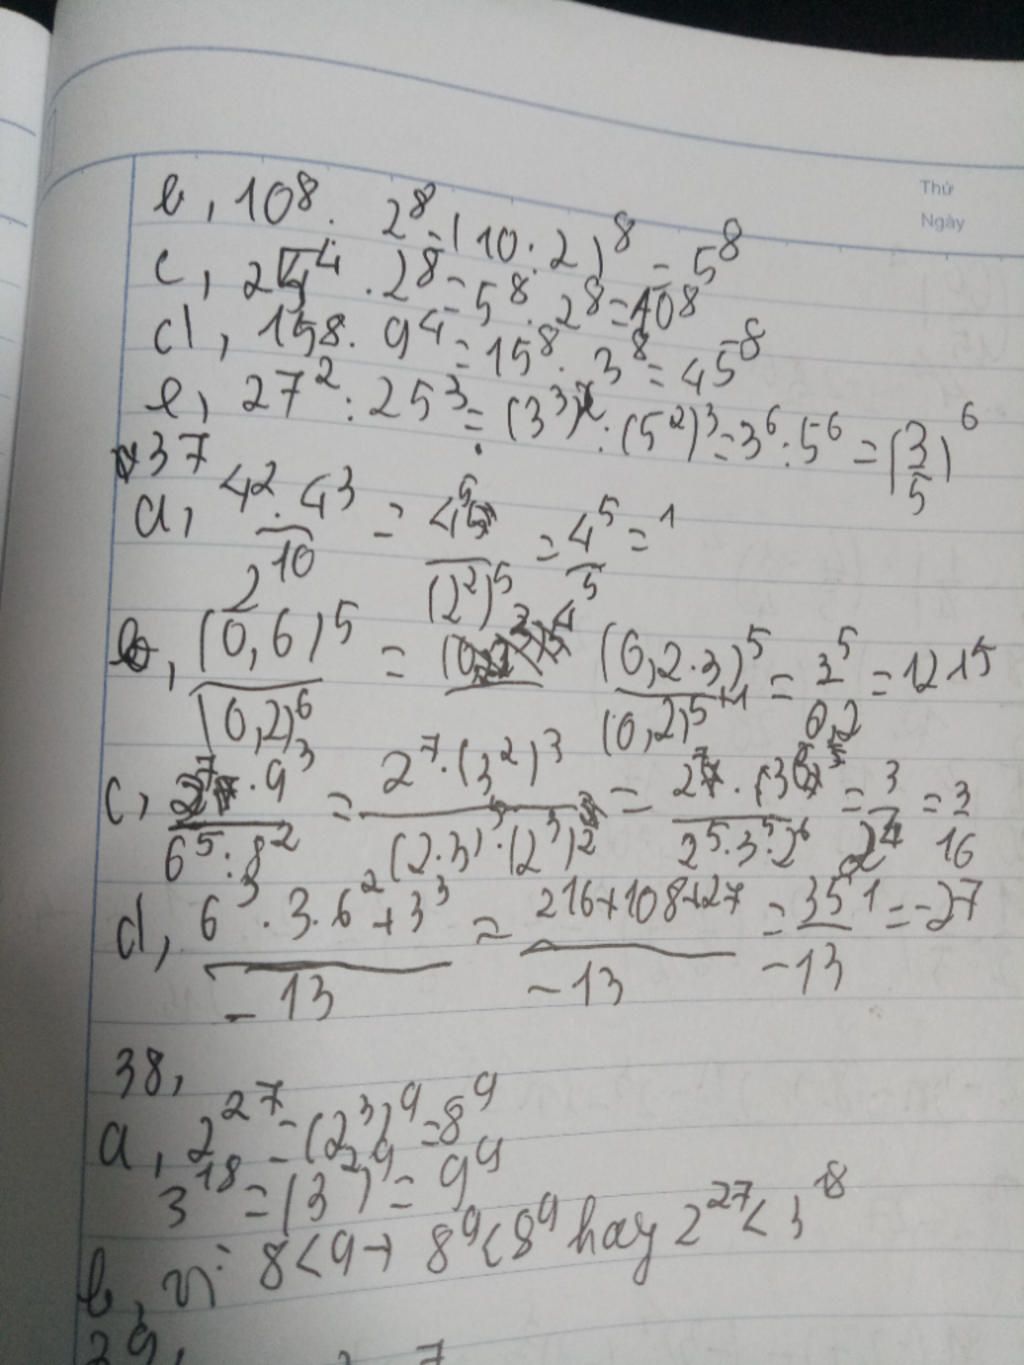 Thứ
Ngày
b, 10⁸. 2⁸ = (10.2)⁸ = 5⁸
c, 25⁴ . 2⁸ = 5⁸ . 2⁸ = 10⁸
d, 15⁸. 9⁴ = 15⁸ . 3⁸ = 45⁸
e, 27² : 25³ = (3³)² : (5²)³ = 3⁶ : 5⁶ = (3/5)⁶
37
a, 4² . 4³ / 2¹⁰ = 4⁵ / (2²)⁵ = 4⁵ / 4⁵ = 1
b, (0,6)⁵ / (0,2)⁶ = (0,2.3)⁵ / (0,2)⁵⁺¹ = 3⁵ / 0,2 = 1215
c, 2⁷ . 9³ / 6⁵ : 8² = 2⁷ . (3²)³ / (2.3)⁵ . (2³)² = 2⁷ . 3⁶ / 2⁵ . 3⁵ . 2⁶ = 3 / 2⁴ = 3 / 16
d, 6³ . 3.6² + 3³ / -13 = 216 + 108 + 27 / -13 = 351 / -13 = -27
38,
a, 2²⁷ = (2³)⁹ = 8⁹
3¹⁸ = (3²)⁹ = 9⁹
b, vì 8 < 9 → 8⁹ < 8⁹ hay 2²⁷ < 3¹⁸
39,